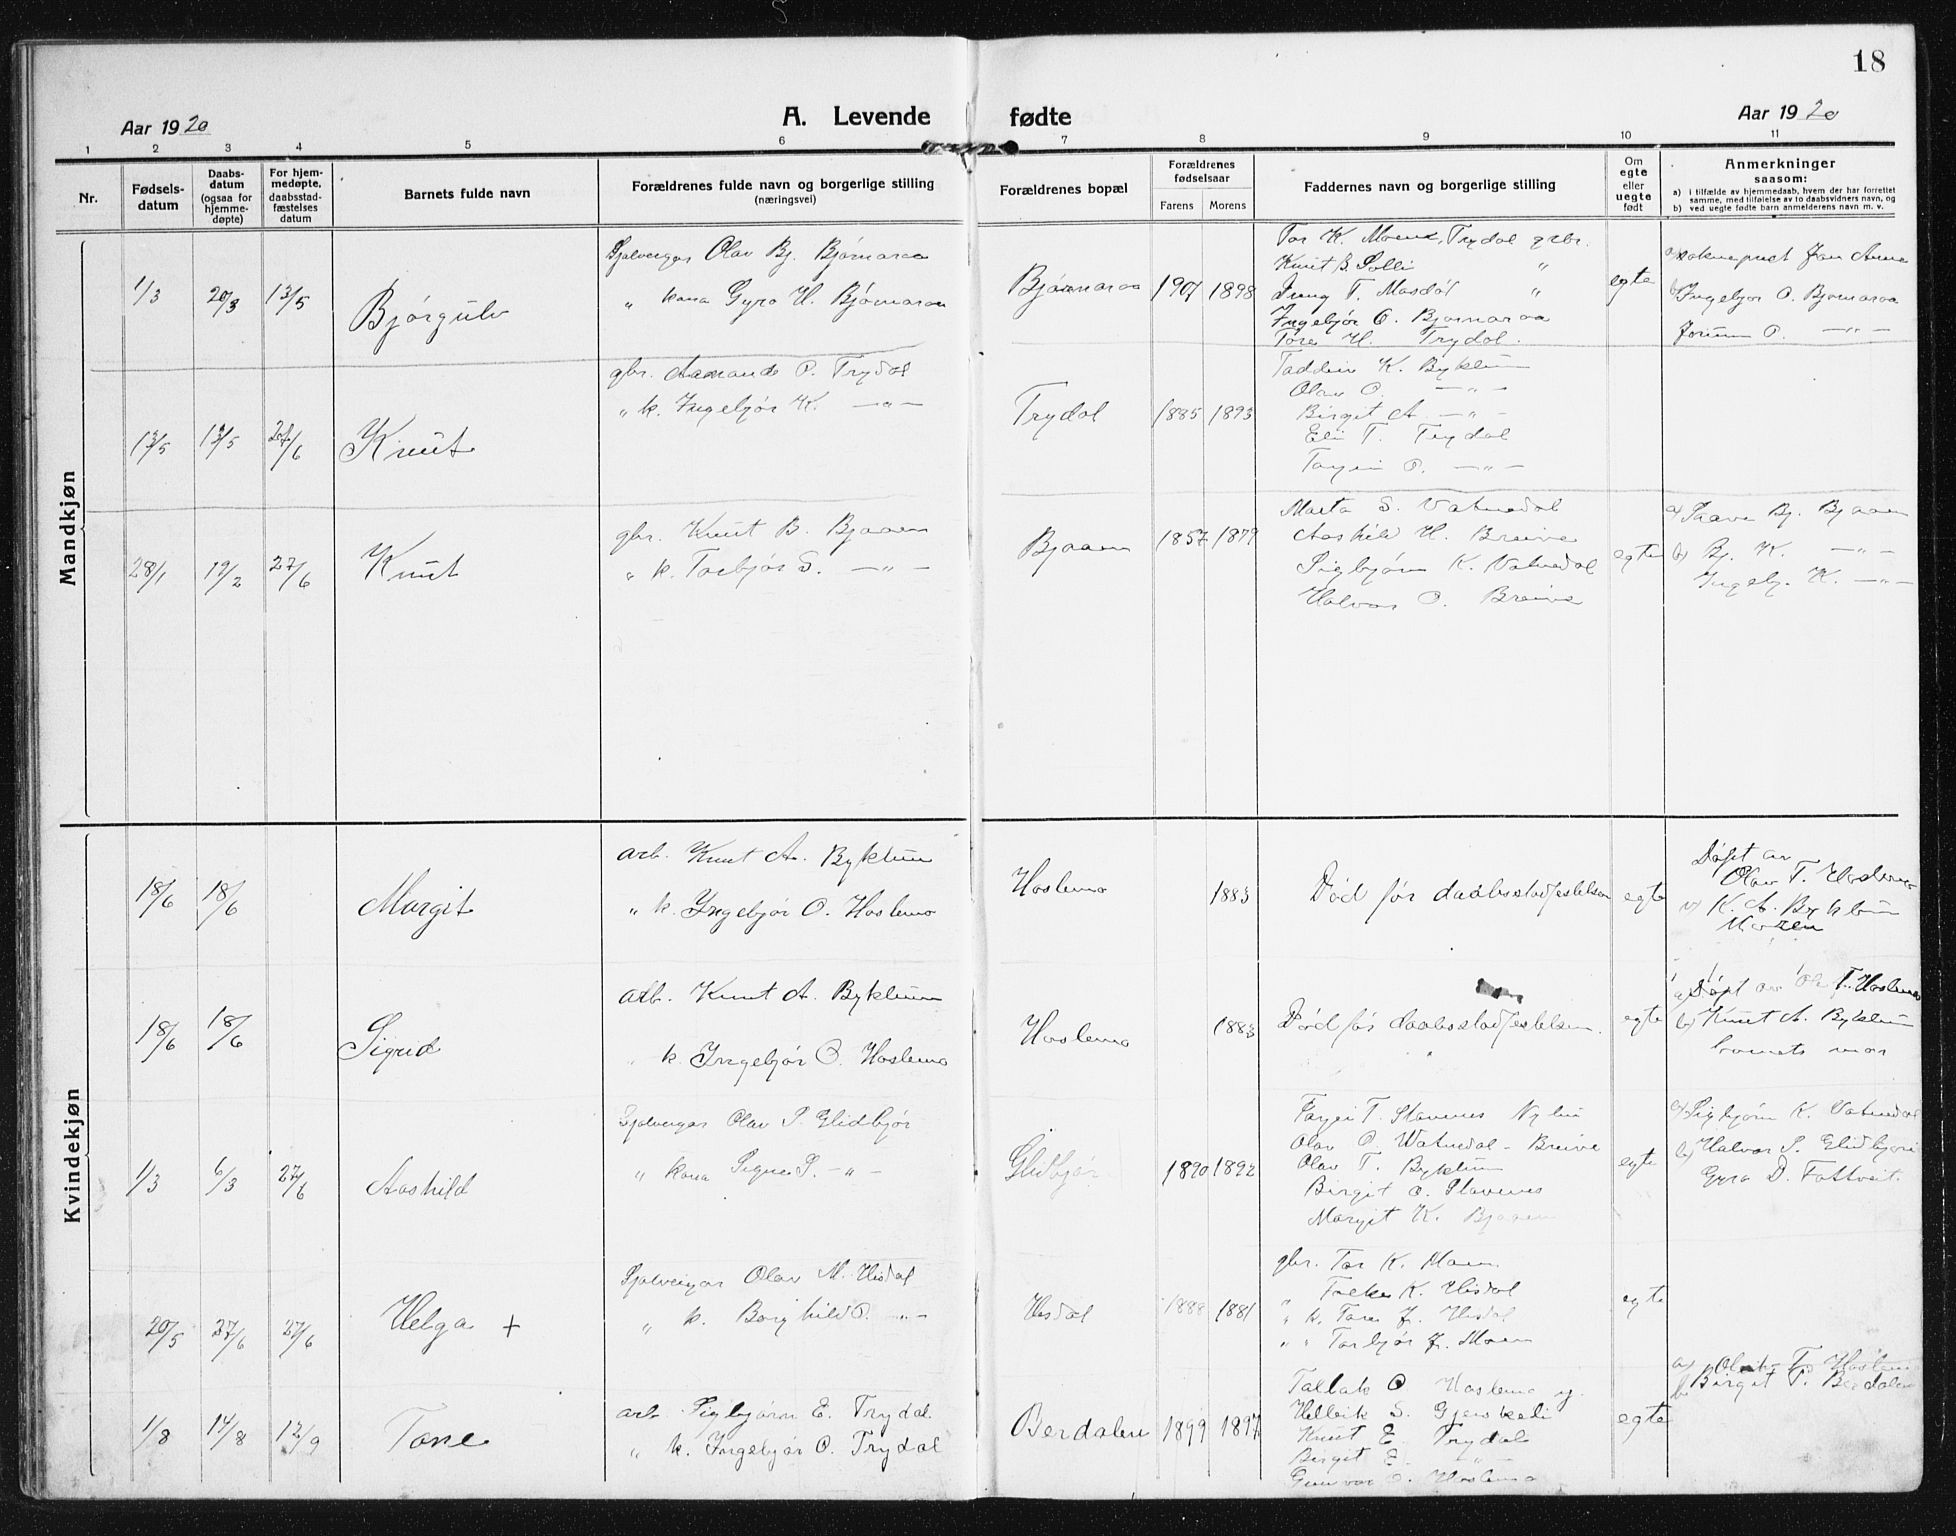 18
Aar 1920
A. Levende fødte
Aar 1920
1 2 3 4 5 6 7 8 9 10 11
Nr.
Fødsels-
datum
Daabs-
datum
(ogsaa for
hjemme-
døpte)
For hjem-
medøpte,
daabsstad-
fæstelses
datum
Barnets fulde navn
Forældrenes fulde navn og borgerlige stilling
(næringsvei)
Forældrenes bopæl
Forældrenes
fødselsaar
Farens Morens
Faddernes navn og borgerlige stilling
Om
egte
eller
uegte
født
Anmerkninger
saasom:
a) i tilfælde av hjemmedaab, hvem der har forrettet
samme, med tilføielse av to daabsvidners navn, og
b) ved uegte fødte barn anmelderens navn m. v.
Mandkjøn
1/3 20/3 13/5 Bjørgulv
Sjølveigar Olav Bj. Bjørnaraa
" kona Gyro H. Bjørnaraa
Bjørnaraa 1901 1898
Tor K. Moen, Trydal gbr.
Knut B. Solli "
T. Mosdøl "
Ingebjør O. Bjørnaraa
Tore H. Trydal.
egte
a) sokneprest
b) Ingebjor O. Bjornaraa
Jorunn O. —"—
13/5 13/5 27/6 Knut
gbr. Aamund O. Trydal
" k. Ingebjør K. —"—
Trydal 1885 1893
K. Byklum
Olav O. —"—
Birgit A —"—
Eli T. Trydal
O. —"—
28/1 19/2 27/6 Knut
gbr. Knut B. Bjaaen
" k. Torbjør S. —"—
Bjaaen 1857 1879
S. Vatnedal
Aashild H. Breive
Sigbjørn K. Vatnedal
Halvor O. Breive
egte
a) Bj. Bjaaen
b) Bj. K. —"—
Ingebj. K. —"—
Kvindekjøn
18/6 18/6 Margit
arb. Knut A. Byklum
" k. Ingebjør O. Hoslemo
Hoslemo 1883
Død før daabsstadfestelsen
egte
Døpt av
Olav T. Hoslemo
K. A. Byklum
18/6 18/6 Sigrid
arb. Knut A. Byklum
" k. Ingebjør O. Hoslemo
Hoslemo 1883
Død før daabsstadfestelsen.
egte
a) Døpt av Ol T. Hoslemo
b) Knut A. Byklum
barnets mor
1/3 6/3 27/6 Aashild
Sjølveigar Olav S. Glidbjør
" kona Signe S. —"—
Glidbjør 1890 1892
T. Stavenes
Olav O. Watnedal - Breive
Olav T. Byklum
Birgit O. Stavenes
Margit K. Bjaaen
egte
a) Sigbjørn K. Vatnedal
b) Halvor S. Glidbjør
Gyro D.
20/5 27/6 27/6 Helga +
Sjølveigar Olav M. Hisdal
" k. Borghild O. —"—
Hisdal 1888 1881
gbr. Tor K. Moen
" K. Hisdal
" k. Tore J. Hisdal
" " Torbjør J. Moen
egte
1/8 14/8 12/9 Tone
arb. Sigbjørn E. Trydal
" k. Ingebjør O. Trydal
Berdalen 1899 1897
Tallak O Hoslemo
S.
Knut E. Trydal
Birgit E. —"—
Gunvor O. Hoslemo
egte
a) T. Hoslemo
b) Birgit T. Berdalen